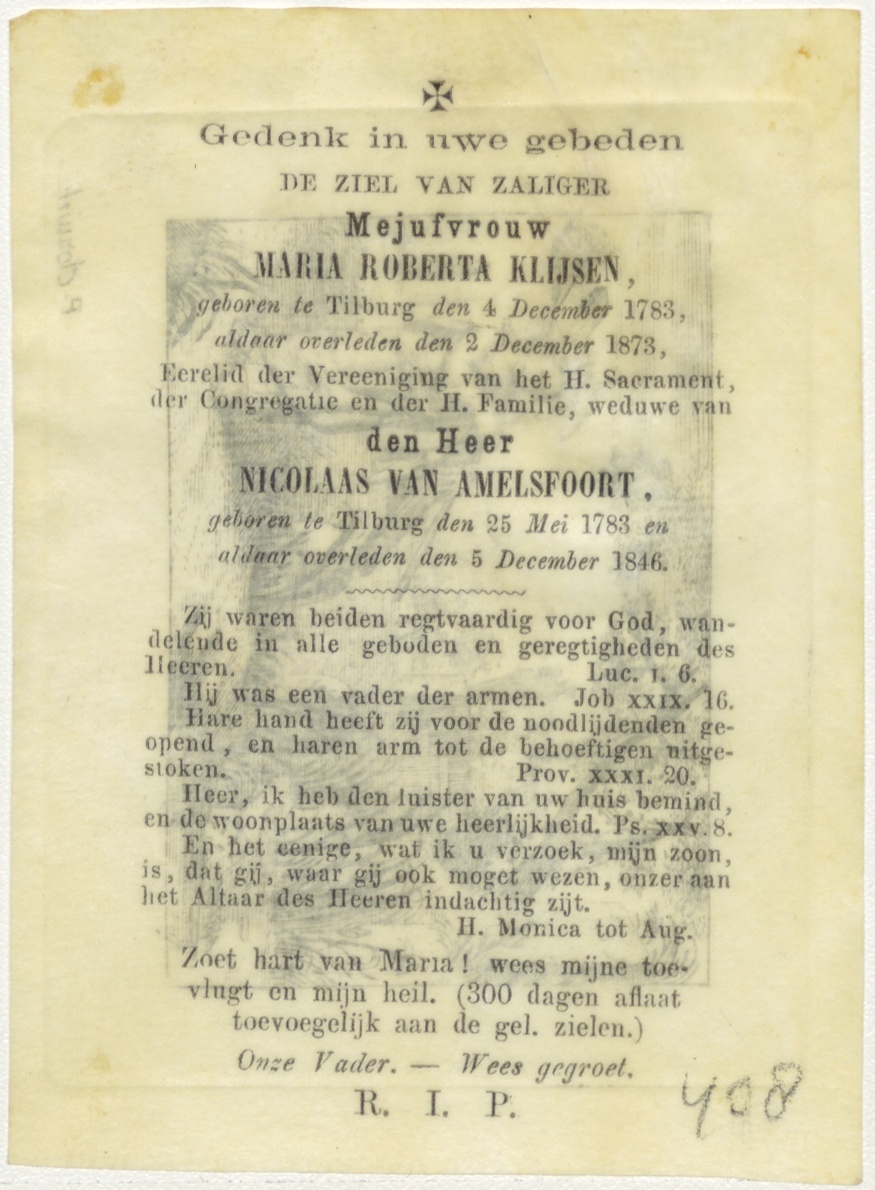 ✠
Gedenk in uwe gebeden
DE ZIEL VAN ZALIGER
Mejufvrouw
MARIA ROBERTA KLIJSEN,
geboren te Tilburg den 4 December 1783,
aldaar overleden den 2 December 1873,
Eerelid der Vereeniging van het H. Sacrament,
der Congregatie en der H. Familie, weduwe van
den Heer
NICOLAAS VAN AMELSFOORT.
geboren te Tilburg den 25 Mei 1783 en
aldaar overleden den 5 December 1846.
Zij waren beiden regtvaardig voor God, wan-
delende in alle geboden en geregtigheden des
Heeren. Luc. I. 6.
Hij was een vader der armen. Job XXIX. 16.
Hare hand heeft zij voor de noodlijdenden ge-
opend, en haren arm tot de behoeftigen uitge-
stoken. Prov. XXXI. 20.
Heer, ik heb den luister van uw huis bemind,
en de woonplaats van uwe heerlijkheid. Ps. XXV. 8.
En het eenige, wat ik u verzoek, mijn zoon,
is, dat gij, waar gij ook moget wezen, onzer aan
het Altaar des Heeren indachtig zijt.
H. Monica tot Aug.
Zoet hart van Maria! wees mijne toe-
vlugt en mijn heil. (300 dagen aflaat
toevoegelijk aan de gel. zielen.)
Onze Vader. — Wees gegroet.
R. I. P.
408